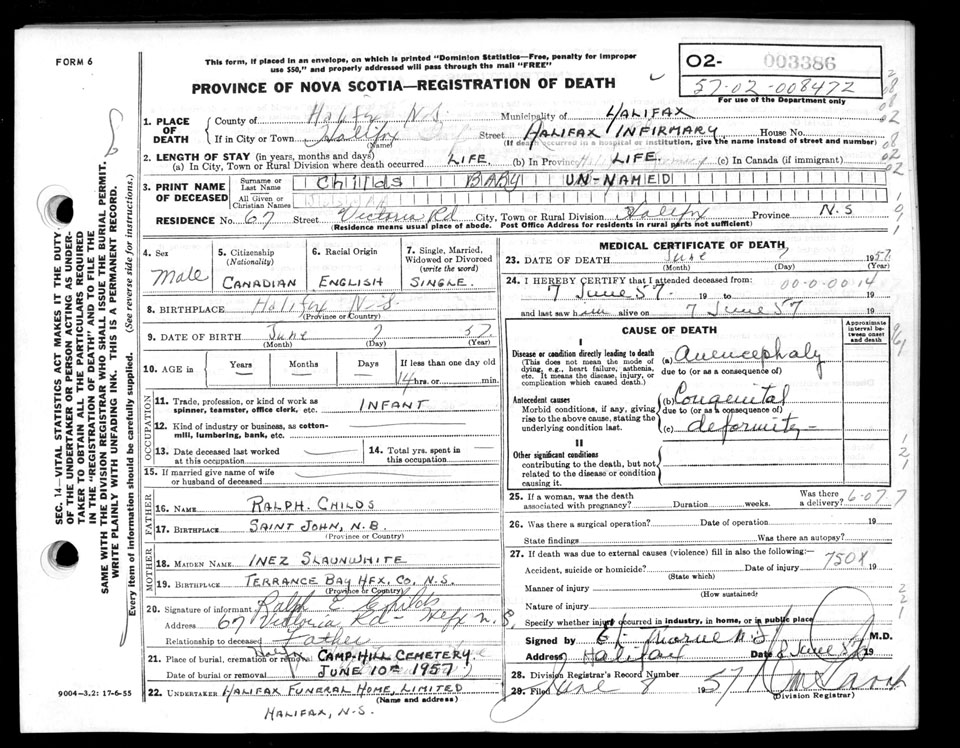 FORM 6
This form, if placed in an envelope, on which is printed "Dominion Statistics—Free, penalty for improper
use $50," and properly addressed will pass through the mail "FREE"
PROVINCE OF NOVA SCOTIA—REGISTRATION OF DEATH
O2- 003386
57-02-008472
For use of the Department only
1. PLACE OF DEATH
County of Halifx N.S. Municipality of HALIFAX
If in City or Town Halifx (Name) Street HALIFAX INFIRMARY House No.
(If death occurred in a hospital or institution, give the name instead of street and number)
2. LENGTH OF STAY (in years, months and days)
(a) In City, Town or Rural Division where death occurred LIFE (b) In Province LIFE. (c) In Canada (if immigrant)
3. PRINT NAME OF DECEASED
Surname or Last Name Childs BABY UN-NAMED
All Given or Christian Names
RESIDENCE No. 67 Street Victoria Rd City, Town or Rural Division Halifx Province N.S
(Residence means usual place of abode. Post Office Address for residents in rural parts not sufficient)
4. Sex Male
5. Citizenship (Nationality) CANADIAN
6. Racial Origin ENGLISH
7. Single, Married, Widowed or Divorced (write the word) SINGLE.
8. BIRTHPLACE Halifx N.S.
(Province or Country)
9. DATE OF BIRTH June 7 57
(Month) (Day) (Year)
10. AGE in Years Months Days If less than one day old
14 hrs. or min.
OCCUPATION
11. Trade, profession, or kind of work as spinner, teamster, office clerk, etc. INFANT
12. Kind of industry or business, as cotton-mill, lumbering, bank, etc.
13. Date deceased last worked at this occupation
14. Total yrs. spent in this occupation
15. If married give name of wife or husband of deceased
FATHER
16. NAME RALPH. CHILDS
17. BIRTHPLACE SAINT JOHN, N.B.
(Province or Country)
MOTHER
18. MAIDEN NAME INEZ SLAUNWHITE
19. BIRTHPLACE TERRANCE BAY HFX. CO. N.S.
(Province or Country)
20. Signature of informant Ralph E Childs
Address 67 Victoria Rd - Hefx N.S.
Relationship to deceased Father
21. Place of burial, cremation or removal Halifx CAMP-HILL CEMETERY.
Date of burial or removal JUNE 10TH 1957
22. UNDERTAKER HALIFAX FUNERAL HOME, LIMITED
(Name and address)
HALIFAX, N.S.
9004—3.2: 17-6-55
MEDICAL CERTIFICATE OF DEATH
23. DATE OF DEATH June 7 1957
(Month) (Day) (Year)
24. I HEREBY CERTIFY that I attended deceased from: 00-0-00 14
7 June 57. 19 to 19
and last saw him alive on 7 June 57 19
CAUSE OF DEATH
Approximate interval between onset and death
I
Disease or condition directly leading to death
(This does not mean the mode of dying, e.g., heart failure, asthenia, etc. It means the disease, injury, or complication which caused death.)
(a) Anencephaly
due to (or as a consequence of)
Antecedent causes
Morbid conditions, if any, giving rise to the above cause, stating the underlying condition last.
(b) Congenital
due to (or as a consequence of)
(c) deformity -
II
Other significant conditions
contributing to the death, but not related to the disease or condition causing it.
25. If a woman, was the death associated with pregnancy? Duration weeks. Was there a delivery? 6-07.7
26. Was there a surgical operation? Date of operation 19
State findings Was there an autopsy?
27. If death was due to external causes (violence) fill in also the following:—
Accident, suicide or homicide? (State which) Date of injury 750X 19
Manner of injury (How sustained)
Nature of injury
Specify whether injury occurred in industry, in home, or in public place
Signed by M.D.
Address Halifax Date 8 June 57 19
28. Division Registrar's Record Number
29. Filed June 8 1957
(Division Registrar)
SEC. 14—VITAL STATISTICS ACT MAKES IT THE DUTY
OF THE UNDERTAKER OR PERSON ACTING AS UNDER-
TAKER TO OBTAIN ALL THE PARTICULARS REQUIRED
IN THE "REGISTRATION OF DEATH" AND TO FILE THE
SAME WITH THE DIVISION REGISTRAR WHO SHALL ISSUE THE BURIAL PERMIT.
WRITE PLAINLY WITH UNFADING INK. THIS IS A PERMANENT RECORD.
Every item of information should be carefully supplied. (See reverse side for instructions.)